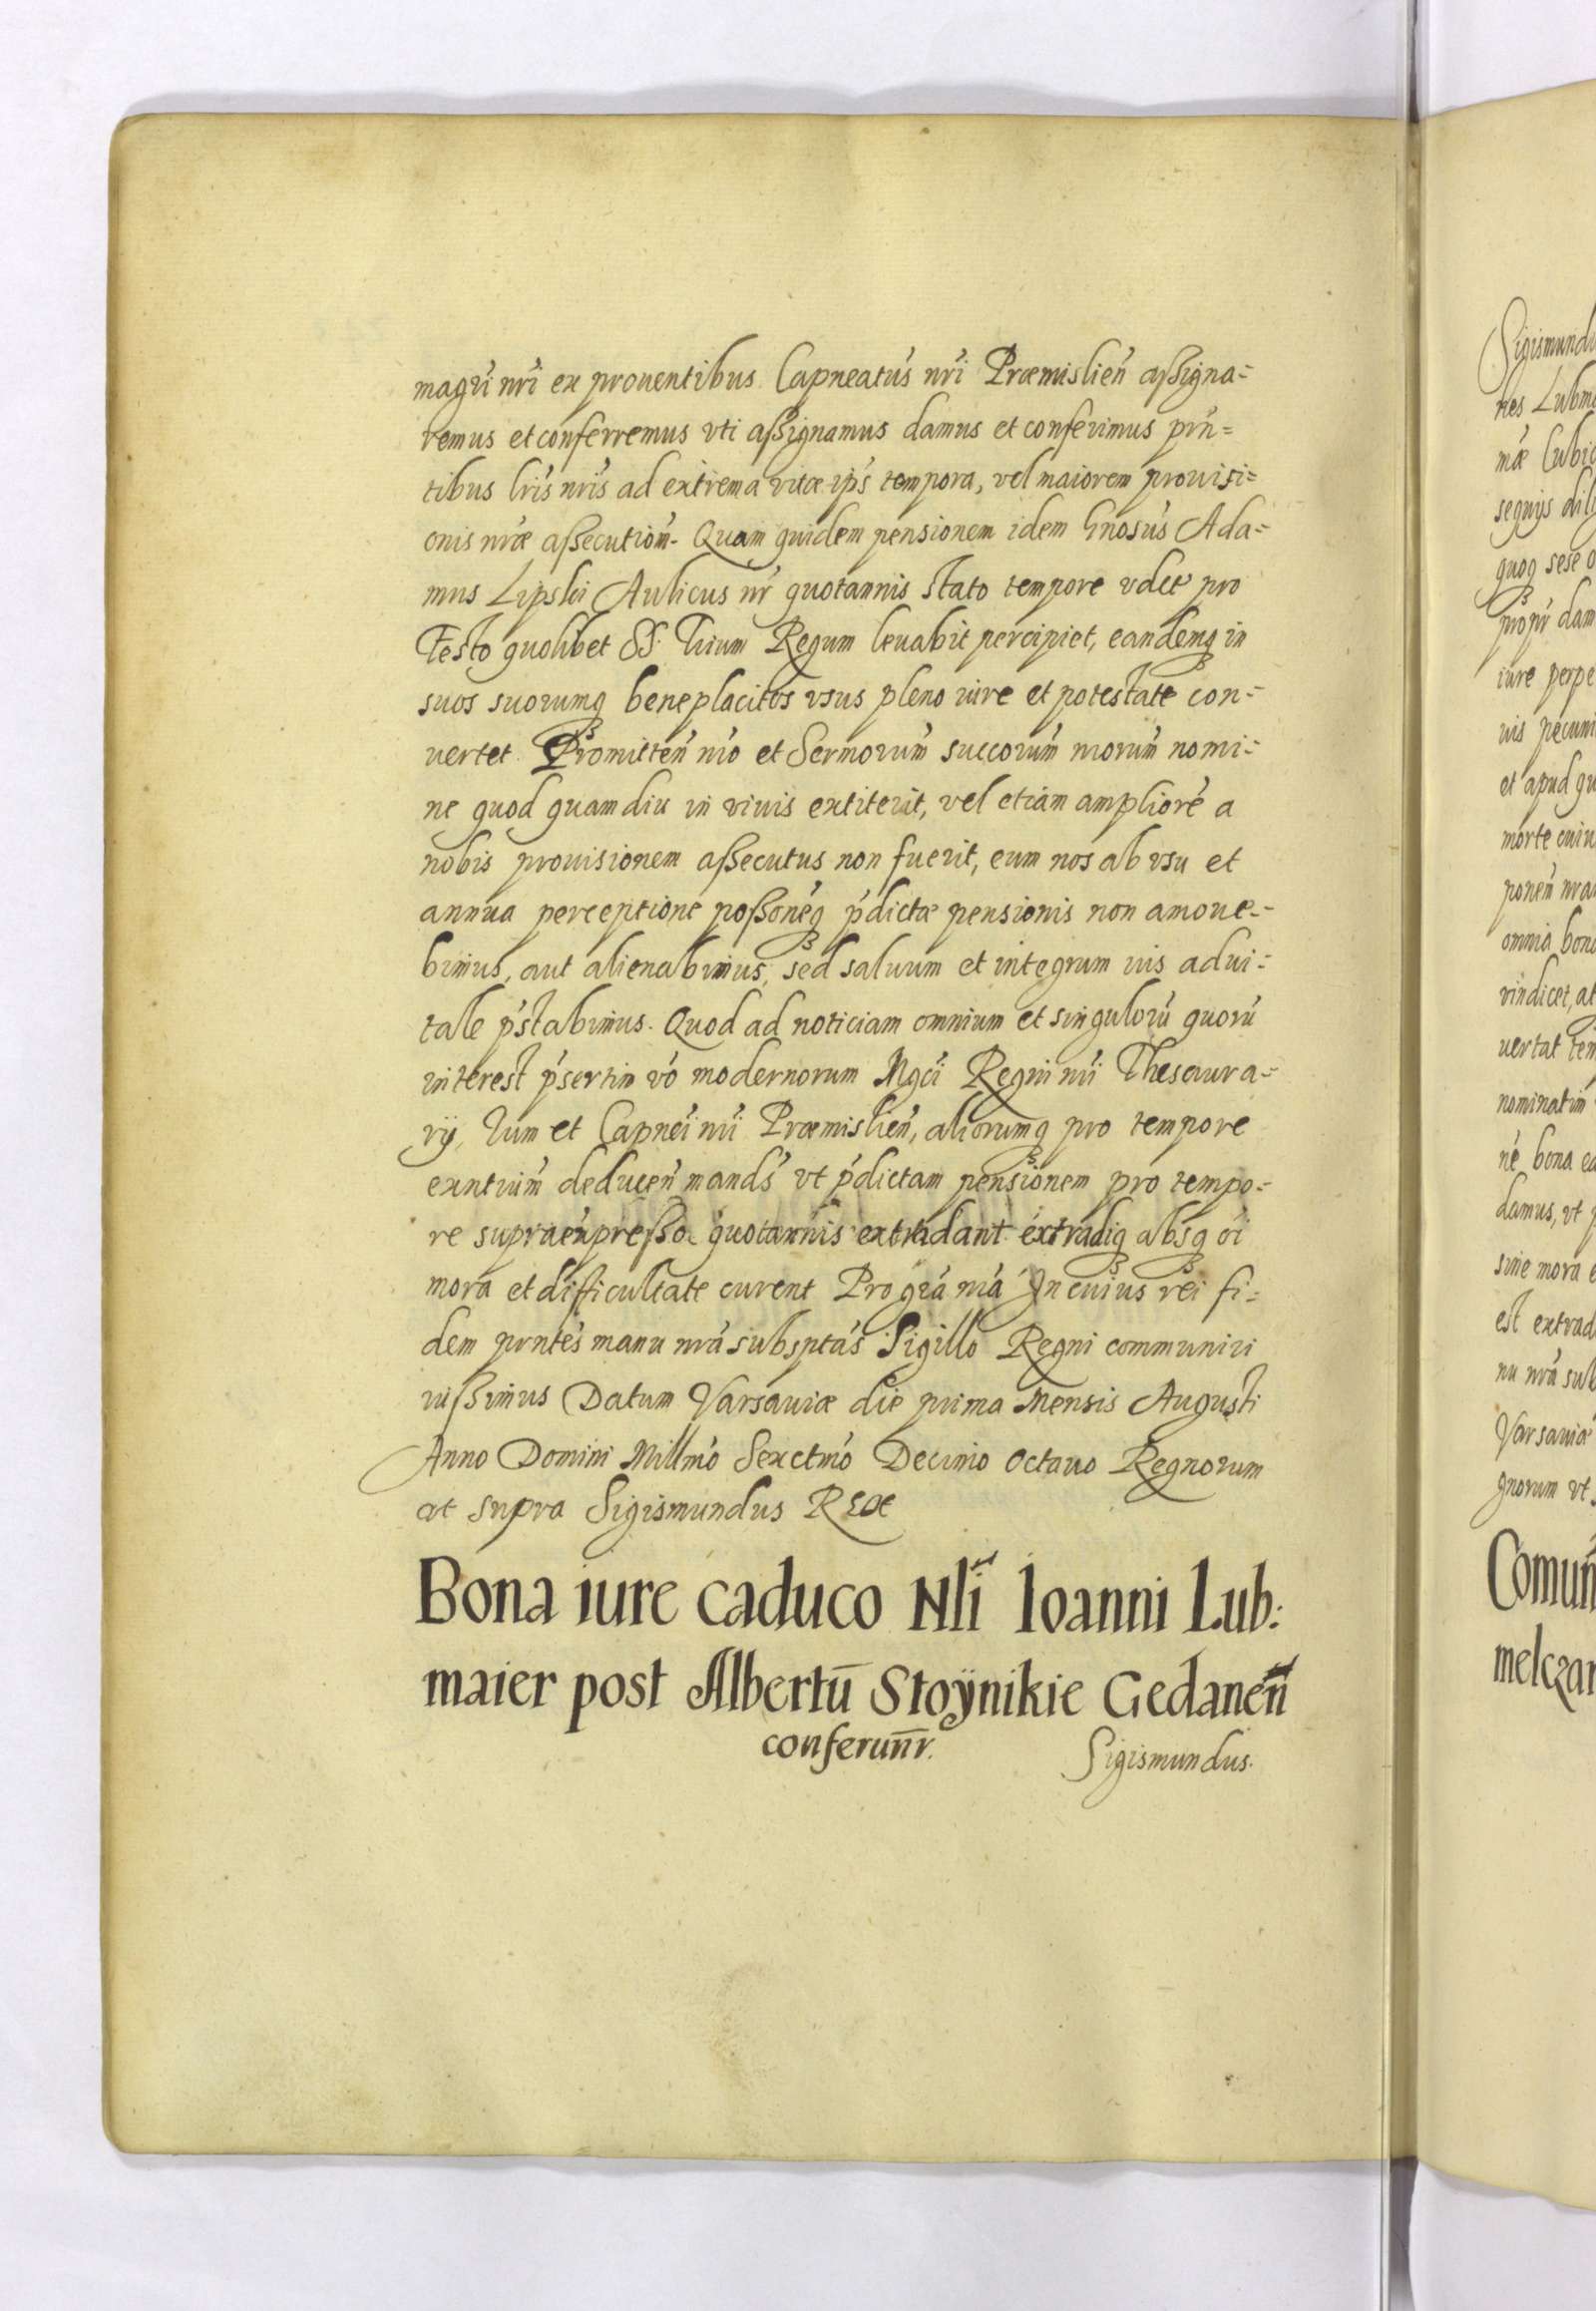 magri nri ex prouentibus Capneatus nri Præmislien̄ aßigna=
remus et conferremus vti aßignamus damus et conferimus prn̄=
tibus lris nris ad extrema vitæ ips tempora, vel maiorem prouisi=
onis nræ aßecution̄. Quam quidem pensionem idem Gnosus Ada=
mus Lipski Aulicus nr quotannis stato tempore vdlt pro
Festo quolibet SS. Trium Regum leuabit percipiet, eandemq in
suos suorumq beneplacitos vsus pleno iure et potestate con=
uertet. Promitten̄ nro et Sermorum succorum nrorum nomi=
ne quod quamdiu in viuis extiterit, vel etiam ampliorē a
nobis prouisionem aßecutus non fuerit, eum nos ab vsu et
annua perceptione poßonēq pdictæ pensionis non amoue=
bimus, aut alienabimus, sed saluum et integrum ius adui=
tale pstabimus. Quod ad noticiam omnium et singulorū quorū
interest psertim vo modernorum Mgci Regni nri Thesaura=
rij, Tum et Capnei nri Præmislien̄, aliorumq pro tempore
exntium deducen̄ mands vt pdictam pensionem pro tempo=
re supraexpreßo quotannis extradant extradiq absq oi
mora et difficultate curent Pro gra nra In cuius rei fi=
dem prntes manu nra subsptas Sigillo Regni communiri
iußimus Datum Varsauiæ die prima Mensis Augusti
Anno Domini Millmo Sexctmo Decimo Octauo Regnorum
ut supra Sigismundus Rex
Bona iure caduco Nli Ioanni Lub:
maier post Albertū Stoÿnikie Gedanen̄
conferun̄r.
Sigismundus.
Sigismund
nes Lubm
mæ Cubic
sequijs dili
quoq sese
propr dam
iure perpe
uis pecuni
et apud qu
morte cuiu
ponem nra
omnia bona
vindicet, at
uertat
nominatim
ne bona ea
damus, vt
sine mora e
est extrad
nu nra sub
Varsauiæ
gnorum vt
Comun̄
melczar